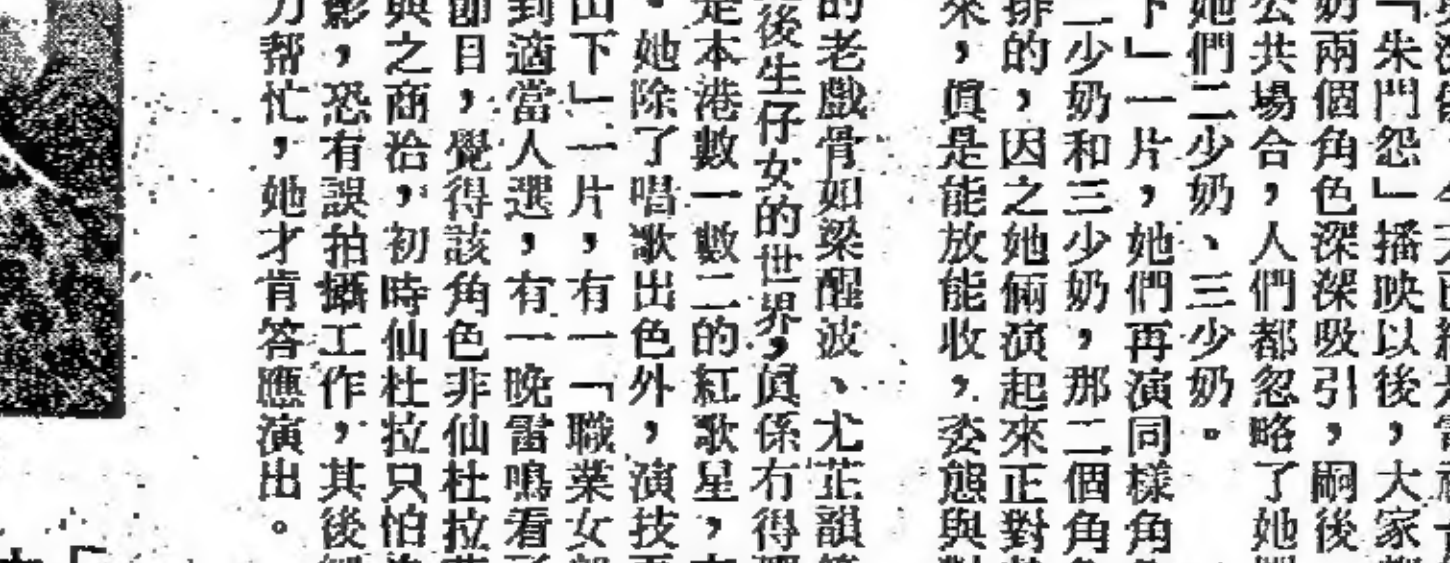 「朱門怨」播映以後，大家
奶兩個角色深深吸引，嗣後
公共場合，人們都忽略了她
她們二少奶、三少奶。
下」一片，她們再演同樣角
二少奶和三少奶，那二個角
排的，因之她倆演起來正對
來，眞是能放能收，姿態與
的老戲骨如梁醒波、尤芷韻
後生仔女的世界，眞係冇得
是本港數一數二的紅歌星，
。她除了唱歌出色外，演技
山下」一片，有一「職業女
到適當人選，有一晚雷鳴看
節目，覺得該角色非仙杜拉
與之商洽，初時仙杜拉只怕
影，恐有誤拍攝工作，其後
力帮忙，她才肯答應演出。